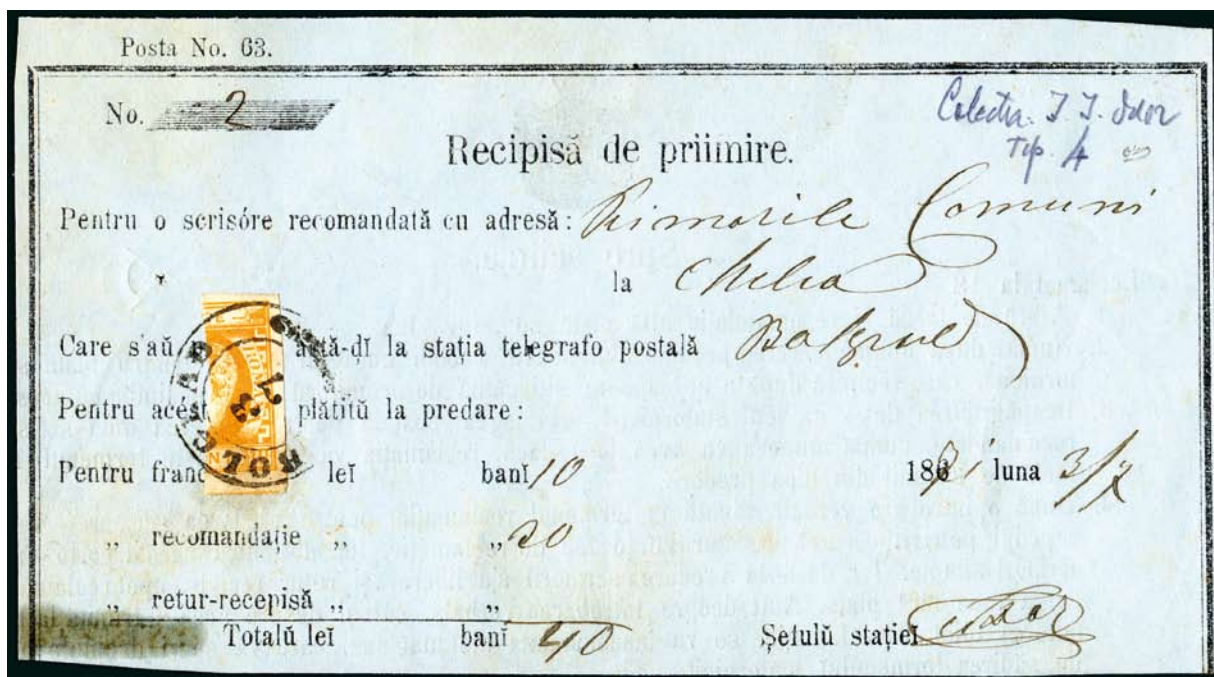 Posta No. 63.
No. 2
Colectia I. I.
Tip. A
Recipisă de priimire.
Pentru o scrisóre recomandată cu adresă: Primariile Comuni
la Chilia
Care s'aŭ astă-dĭ la stația telegrafo postală Bolgrad
Pentru acest plătitŭ la predare:
Pentru franc leĭ banĭ 10 1861 luna 3/7
„ recomandație „ „ 20
„ retur-recepisă „ „
Totalŭ leĭ banĭ Șefulŭ stațieĭ
BOLGRAD